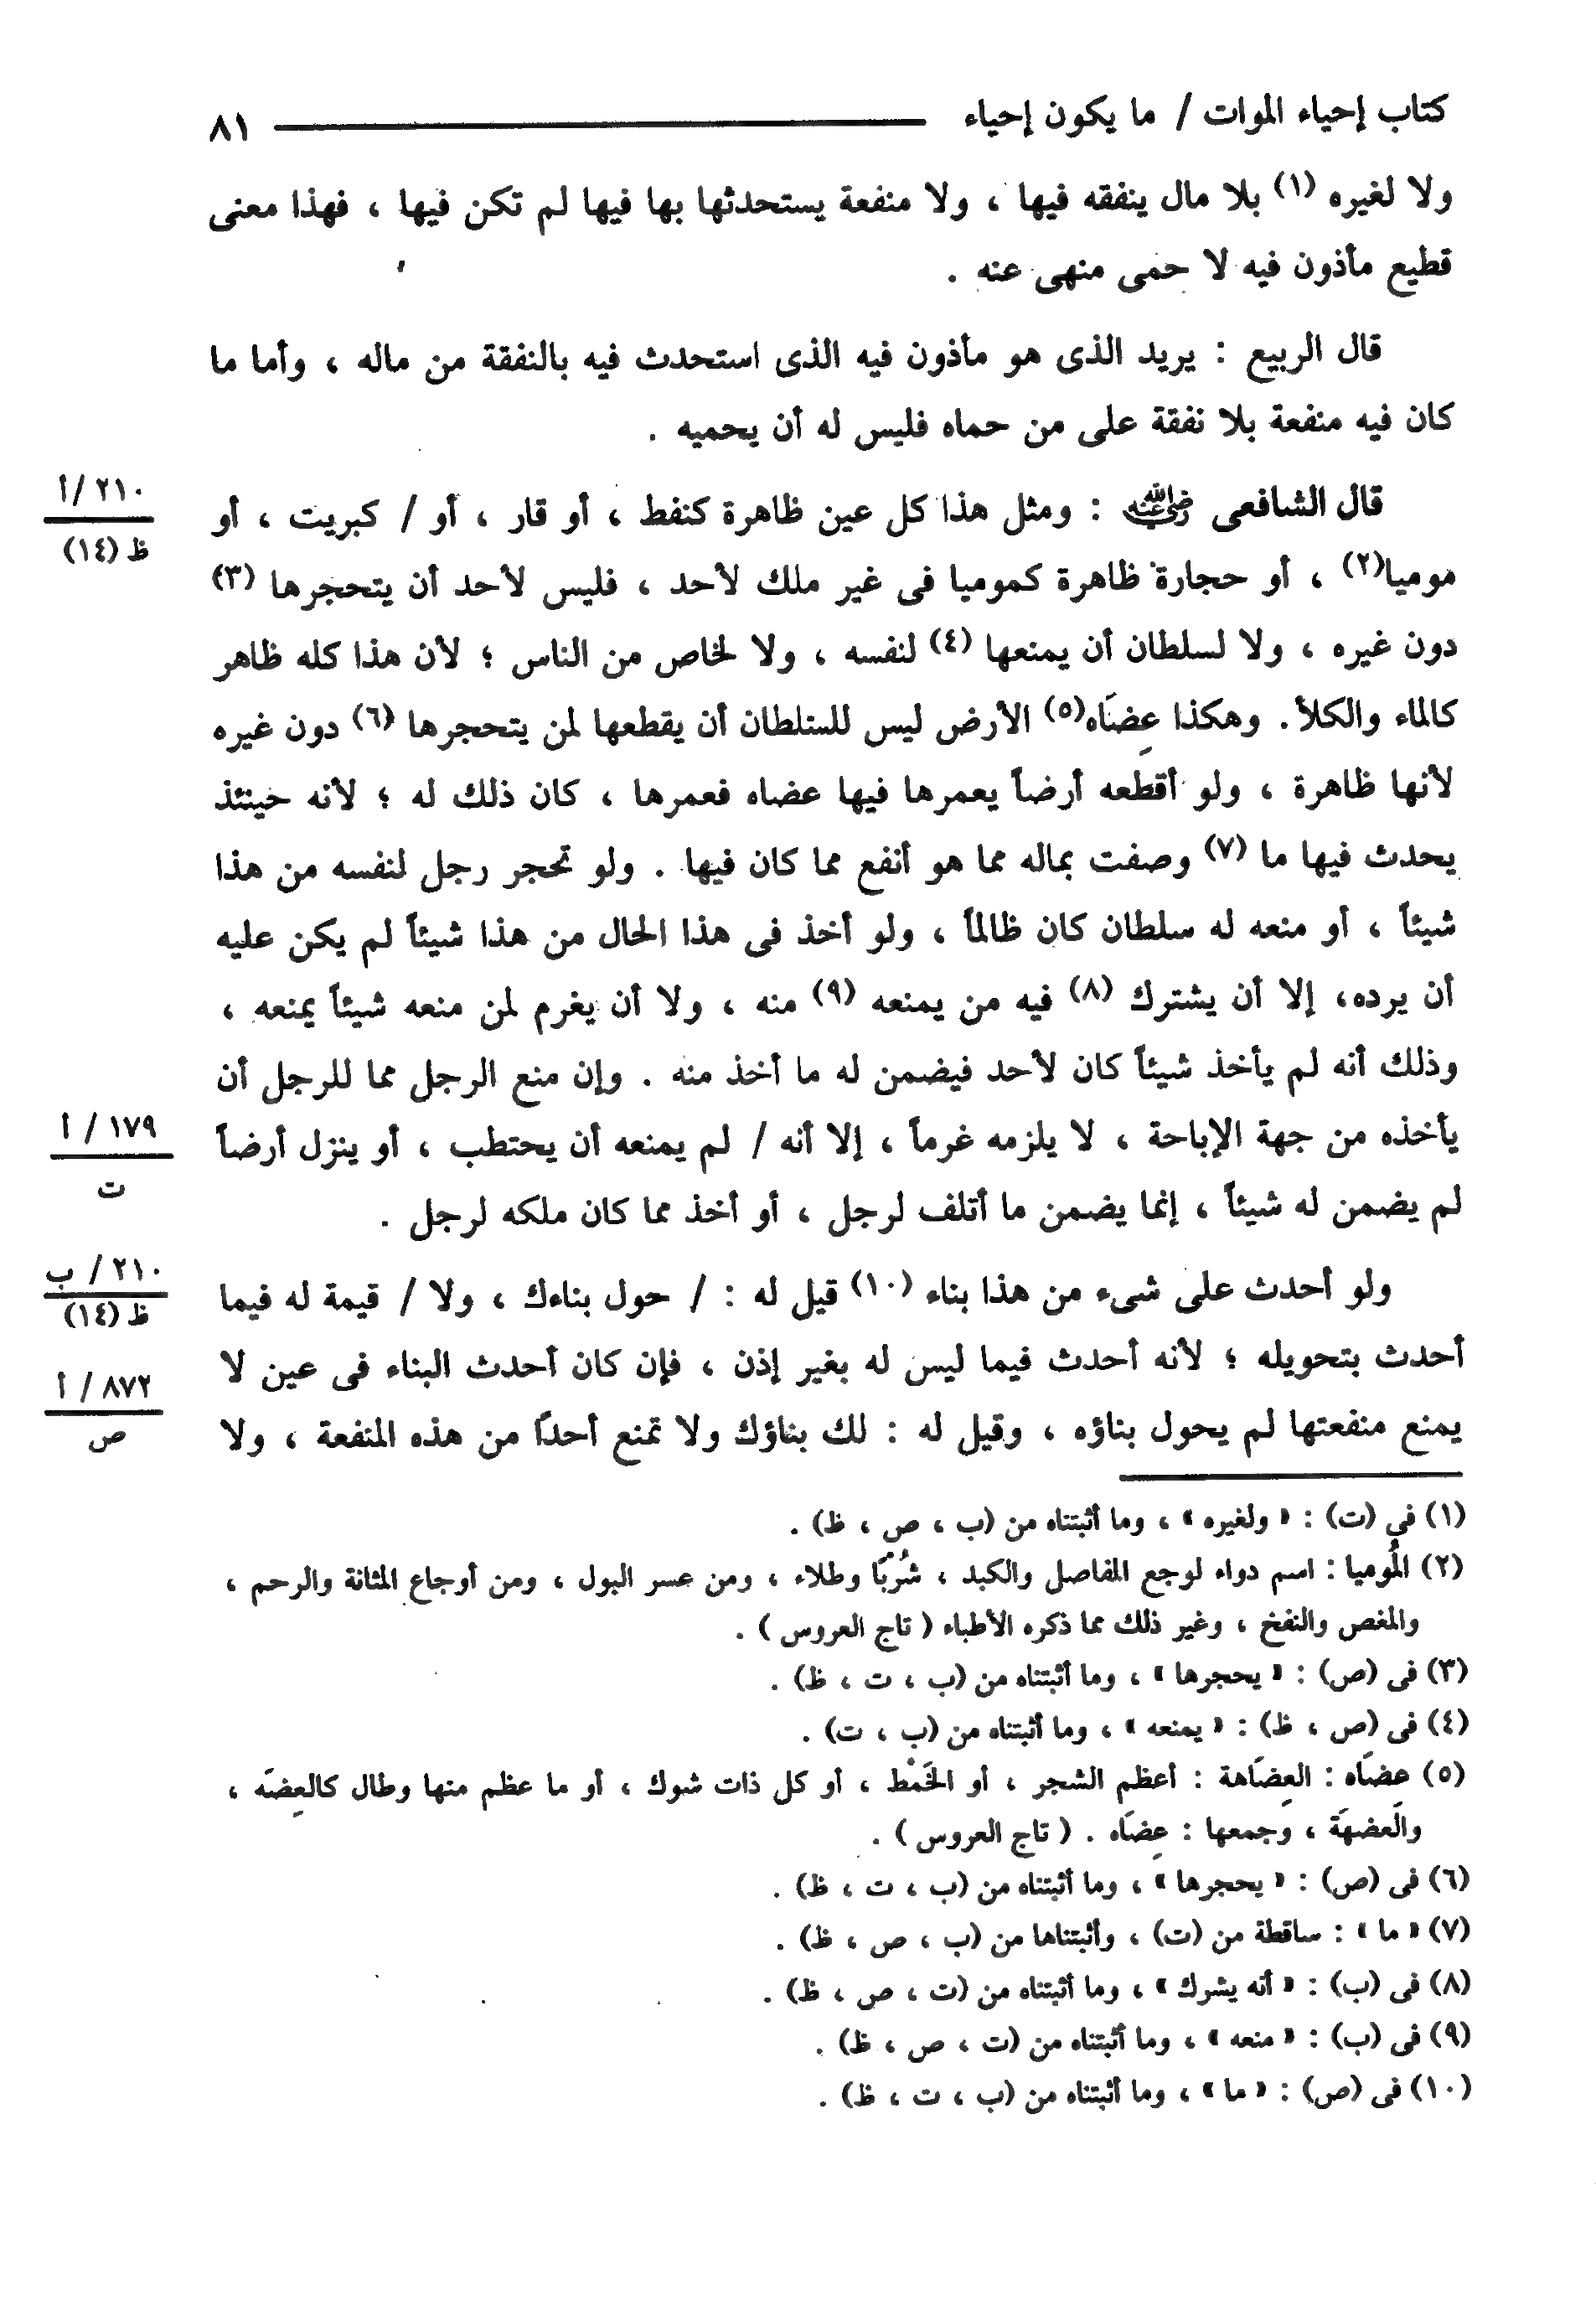 كتاب إحياء الموات / ما يكون إحياء ٨١
ولا لغيره (١) بلا مال ينفقه فيها ، ولا منفعة يستحدثها بها فيها لم تكن فيها ، فهذا معنى
قطيع مأذون فيه لا حمى منهى عنه .
قال الربيع : يريد الذى هو مأذون فيه الذى استحدث فيه بالنفقة من ماله ، وأما ما
كان فيه منفعة بلا نفقة على من حماه فليس له أن يحميه .
قال الشافعى رضي الله عنه : ومثل هذا كل عين ظاهرة كنفط ، أو قار ، أو / كبريت ، أو
٢١٠ /أ
ظ (١٤)
موميا(٢) ، أو حجارة ظاهرة كموميا فى غير ملك لأحد ، فليس لأحد أن يتحجرها (٣)
دون غيره ، ولا لسلطان أن يمنعها (٤) لنفسه ، ولا لخاص من الناس ؛ لأن هذا كله ظاهر
كالماء والكلأ. وهكذا عِضَاه(٥) الأرض ليس للسلطان أن يقطعها لمن يتحجرها (٦) دون غيره
لأنها ظاهرة ، ولو أقطعه أرضاً يعمرها فيها عضاه فعمرها ، كان ذلك له ؛ لأنه حينئذ
يحدث فيها ما (٧) وصفت بماله مما هو أنفع مما كان فيها . ولو تحجر رجل لنفسه من هذا
شيئاً ، أو منعه له سلطان كان ظالماً ، ولو أخذ فى هذا الحال من هذا شيئاً لم يكن عليه
أن يرده، إلا أن يشترك (٨) فيه من يمنعه (٩) منه ، ولا أن يغرم لمن منعه شيئاً يمنعه ،
وذلك أنه لم يأخذ شيئاً كان لأحد فيضمن له ما أخذ منه . وإن منع الرجل مما للرجل أن
يأخذه من جهة الإباحة ، لا يلزمه غرماً ، إلا أنه / لم يمنعه أن يحتطب ، أو ينزل أرضاً
١٧٩ / أ
ت
لم يضمن له شيئاً ، إنما يضمن ما أتلف لرجل ، أو أخذ مما كان ملكه لرجل .
ولو أحدث على شىء من هذا بناء (١٠) قيل له : / حول بناءك ، ولا / قيمة له فيما
٢١٠ / ب
ظ (١٤)
أحدث بتحويله ؛ لأنه أحدث فيما ليس له بغير إذن ، فإن كان أحدث البناء فى عين لا
٨٧٢ / أ
ص
يمنع منفعتها لم يحول بناؤه ، وقيل له : لك بناؤك ولا تمنع أحدًا من هذه المنفعة ، ولا
(١) فى (ت) : « ولغيره » ، وما أثبتناه من (ب ، ص ، ظ) .
(٢) المُوميا : اسم دواء لوجع المفاصل والكبد ، شُرْبًا وطلاء ، ومن عسر البول ، ومن أوجاع المثانة والرحم ،
والمغص والنفخ ، وغير ذلك مما ذكره الأطباء ( تاج العروس ) .
(٣) فى (ص) : « يحجرها » ، وما أثبتناه من (ب ، ت ، ظ) .
(٤) فى (ص ، ظ) : « يمنعه » ، وما أثبتناه من (ب ، ت) .
(٥) عضَاه : العِضَاهة : أعظم الشجر ، أو الخَمْط ، أو كل ذات شوك ، أو ما عظم منها وطال كالعِضَه ،
والَعضهَة ، وَجمعها : عِضَاه . ( تاج العروس ) .
(٦) فى (ص) : « يحجرها » ، وما أثبتناه من (ب ، ت ، ظ) .
(٧) « ما » : ساقطة من (ت) ، وأثبتناها من (ب ، ص ، ظ) .
(٨) فى (ب) : « أنه يشرك » ، وما أثبتناه من (ت ، ص ، ظ) .
(٩) فى (ب) : « منعه » ، وما أثبتناه من (ت ، ص ، ظ) .
(١٠) فى (ص) : « ما » ، وما أثبتناه من (ب ، ت ، ظ) .